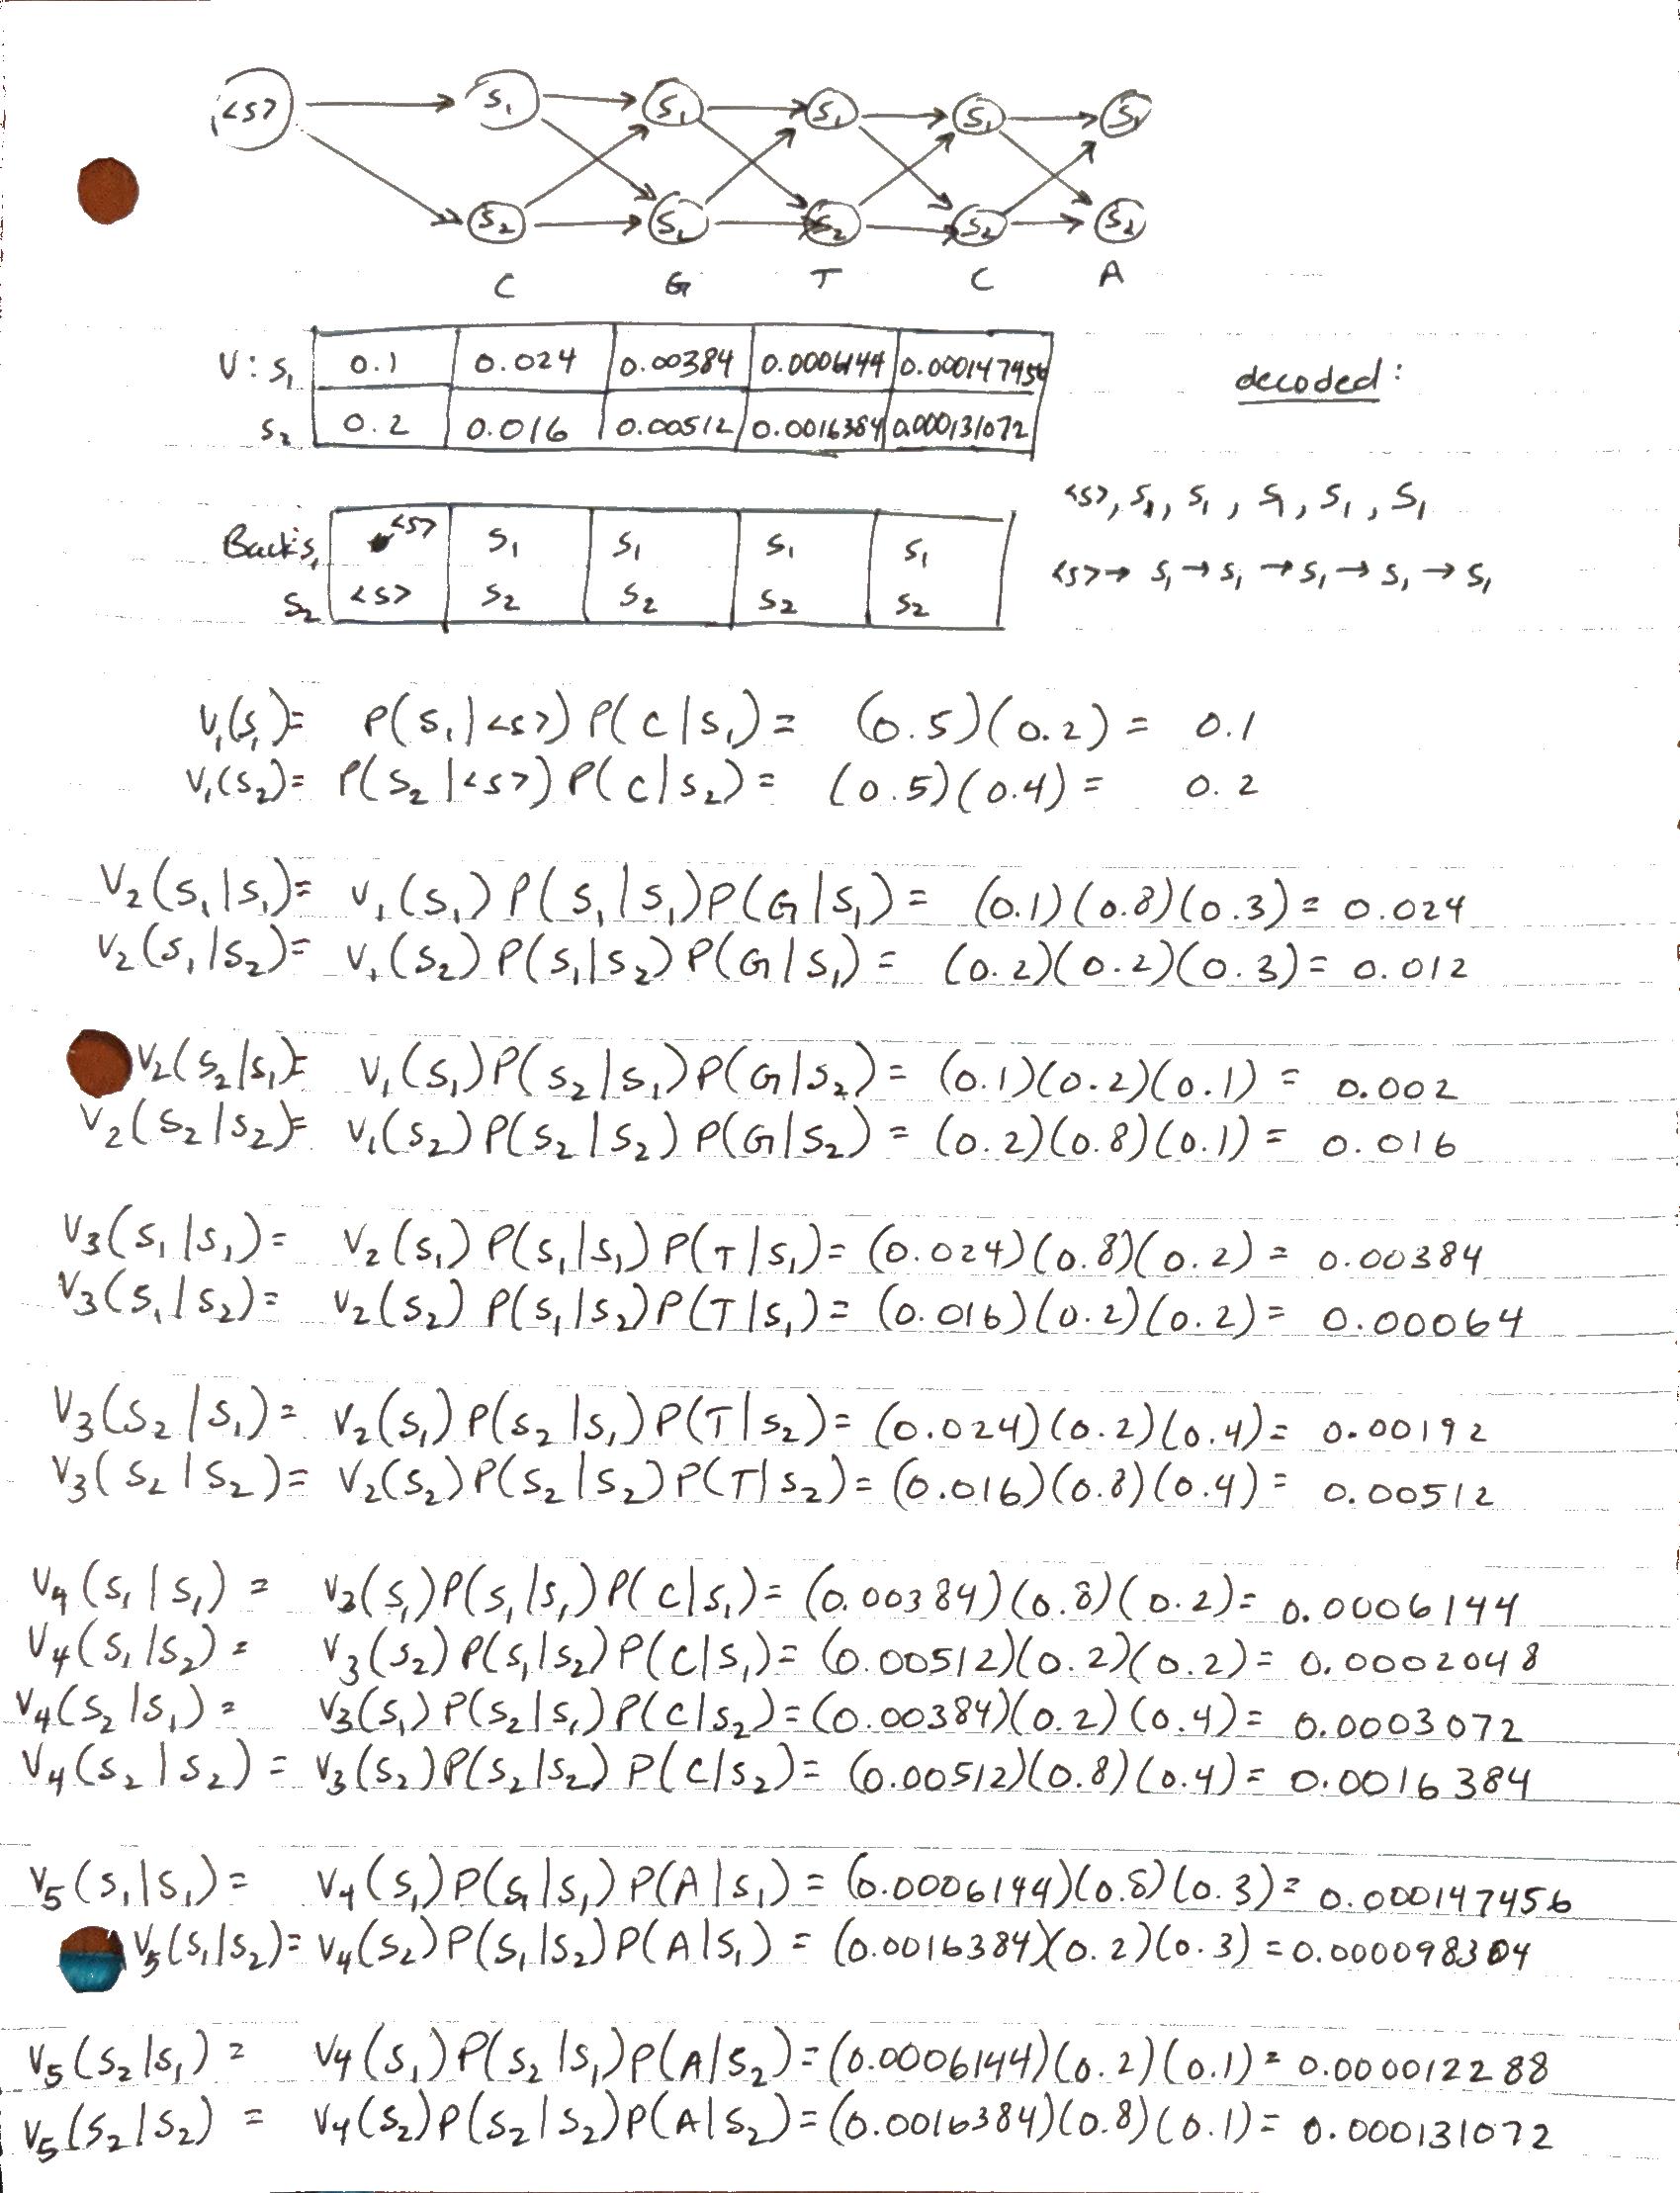 <s> S₁ S₁ S₁ S₁ S₁
S₂ S₂ S₂ S₂ S₂
C G T C A
V: S₁ 0.1 0.024 0.00384 0.0006144 0.000147456
S₂ 0.2 0.016 0.00512 0.0016384 0.000131072
decoded:
<s>, S₁, S₁, S₁, S₁, S₁
<s> → S₁ → S₁ → S₁ → S₁ → S₁
Back: S₁ <s> S₁ S₁ S₁ S₁
S₂ <s> S₂ S₂ S₂ S₂
V₁(S₁) = P(S₁|<s>) P(C|S₁) = (0.5)(0.2) = 0.1
V₁(S₂) = P(S₂|<s>) P(C|S₂) = (0.5)(0.4) = 0.2
V₂(S₁|S₁) = V₁(S₁) P(S₁|S₁) P(G|S₁) = (0.1)(0.8)(0.3) = 0.024
V₂(S₁|S₂) = V₁(S₂) P(S₁|S₂) P(G|S₁) = (0.2)(0.2)(0.3) = 0.012
V₂(S₂|S₁) = V₁(S₁) P(S₂|S₁) P(G|S₂) = (0.1)(0.2)(0.1) = 0.002
V₂(S₂|S₂) = V₁(S₂) P(S₂|S₂) P(G|S₂) = (0.2)(0.8)(0.1) = 0.016
V₃(S₁|S₁) = V₂(S₁) P(S₁|S₁) P(T|S₁) = (0.024)(0.8)(0.2) = 0.00384
V₃(S₁|S₂) = V₂(S₂) P(S₁|S₂) P(T|S₁) = (0.016)(0.2)(0.2) = 0.00064
V₃(S₂|S₁) = V₂(S₁) P(S₂|S₁) P(T|S₂) = (0.024)(0.2)(0.4) = 0.00192
V₃(S₂|S₂) = V₂(S₂) P(S₂|S₂) P(T|S₂) = (0.016)(0.8)(0.4) = 0.00512
V₄(S₁|S₁) = V₃(S₁) P(S₁|S₁) P(C|S₁) = (0.00384)(0.8)(0.2) = 0.0006144
V₄(S₁|S₂) = V₃(S₂) P(S₁|S₂) P(C|S₁) = (0.00512)(0.2)(0.2) = 0.0002048
V₄(S₂|S₁) = V₃(S₁) P(S₂|S₁) P(C|S₂) = (0.00384)(0.2)(0.4) = 0.0003072
V₄(S₂|S₂) = V₃(S₂) P(S₂|S₂) P(C|S₂) = (0.00512)(0.8)(0.4) = 0.0016384
V₅(S₁|S₁) = V₄(S₁) P(S₁|S₁) P(A|S₁) = (0.0006144)(0.8)(0.3) = 0.000147456
V₅(S₁|S₂) = V₄(S₂) P(S₁|S₂) P(A|S₁) = (0.0016384)(0.2)(0.3) = 0.000098304
V₅(S₂|S₁) = V₄(S₁) P(S₂|S₁) P(A|S₂) = (0.0006144)(0.2)(0.1) = 0.000012288
V₅(S₂|S₂) = V₄(S₂) P(S₂|S₂) P(A|S₂) = (0.0016384)(0.8)(0.1) = 0.000131072